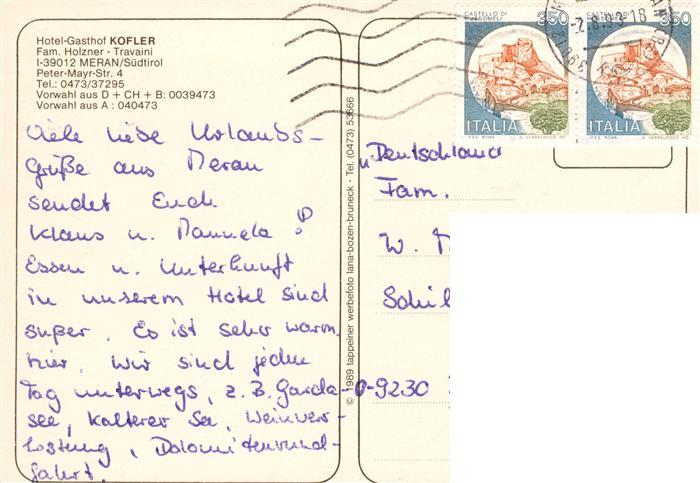 Hotel-Gasthof KOFLER
Fam. Holzner - Travaini
I-39012 MERAN/Südtirol
Peter-Mayr-Str. 4
Tel.: 0473/37295
Vorwahl aus D + CH + B: 0039473
Vorwahl aus A : 040473
Viele liebe Urlaubs-
grüße aus Meran
sendet Euch
Klaus u. Manuela !
Essen u. Unterkunft
in unserem Hotel sind
super. Es ist sehr warm
hier. Wir sind jeden
Tag unterwegs, z. B. Garda-
see, Kalterer See, Weinver-
kostung, Dolomitenrund-
fahrt.
© 1989 tappeiner werbefoto lana-bozen-bruneck - Tel. (0473) 53666
CASTELLO DI
350
ITALIA
I.P.Z.S. ROMA
CASTELLO DI
350
ITALIA
I.P.Z.S. ROMA
Deutschland
Fam.
W.
Schil
D-9230